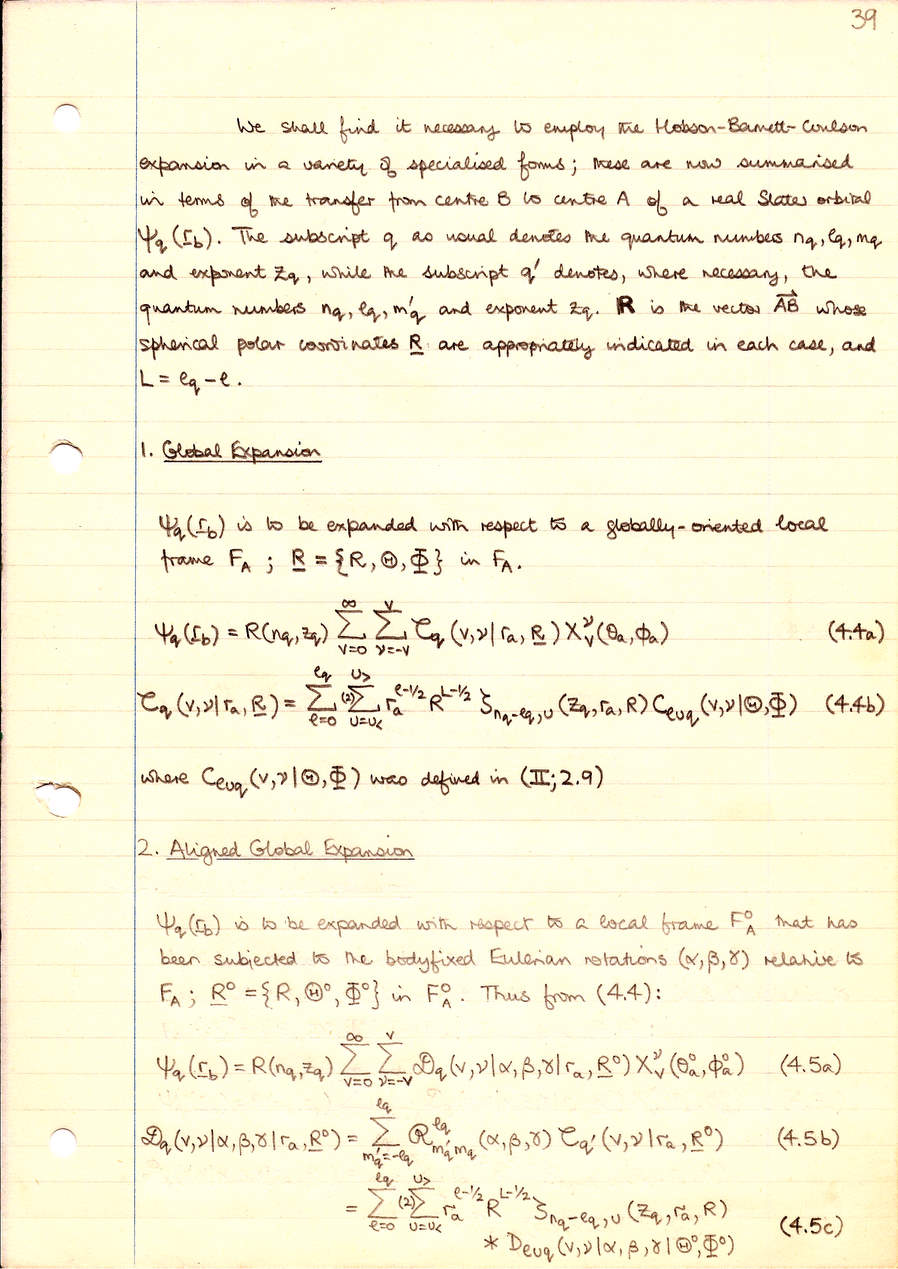 39
We shall find it necessary to employ the Hobson-Barnett-Coulson
expansion in a variety of specialised forms; these are now summarised
in terms of the transfer from centre B to centre A of a real Slater orbital
Ψ_q(r_b). The subscript q as usual denotes the quantum numbers n_q, l_q, m_q
and exponent z_q, while the subscript q' denotes, where necessary, the
quantum numbers n_q, l_q, m'_q and exponent z_q. R is the vector AB⃗ whose
spherical polar coordinates R are appropriately indicated in each case, and
L = l_q - l.
1. Global Expansion
Ψ_q(r_b) is to be expanded with respect to a globally-oriented local
frame F_A ; R = {R, Θ, Φ} in F_A.
Ψ_q(r_b) = R(n_q, z_q) Σ_{v=0}^{∞} Σ_{ν=-v}^{v} 𝒞_q(v,ν|r_a, R) X_v^ν(θ_a, φ_a) (4.4a)
𝒞_q(v,ν|r_a, R) = Σ_{l=0}^{l_q} ⁽²⁾Σ_{u=u<}^{u>} r_a^{l-1/2} R^{L-1/2} ζ_{n_q-l_q,u}(z_q, r_a, R) C_{luq}(v,ν|Θ,Φ) (4.4b)
where C_{luq}(v,ν|Θ,Φ) was defined in (II; 2.9)
2. Aligned Global Expansion
Ψ_q(r_b) is to be expanded with respect to a local frame F_A^o that has
been subjected to the bodyfixed Eulerian rotations (α,β,γ) relative to
F_A ; R^o = {R, Θ^o, Φ^o} in F_A^o. Thus from (4.4):
Ψ_q(r_b) = R(n_q, z_q) Σ_{v=0}^{∞} Σ_{ν=-v}^{v} 𝒟_q(v,ν|α,β,γ|r_a, R^o) X_v^ν(θ_a^o, φ_a^o) (4.5a)
𝒟_q(v,ν|α,β,γ|r_a, R^o) = Σ_{m'_q=-l_q}^{l_q} ℛ^{l_q}_{m'_q m_q}(α,β,γ) 𝒞_{q'}(v,ν|r_a, R^o) (4.5b)
= Σ_{l=0}^{l_q} ⁽²⁾Σ_{u=u<}^{u>} r_a^{l-1/2} R^{L-1/2} ζ_{n_q-l_q,u}(z_q, r_a, R)
* D_{luq}(v,ν|α,β,γ|Θ^o,Φ^o) (4.5c)